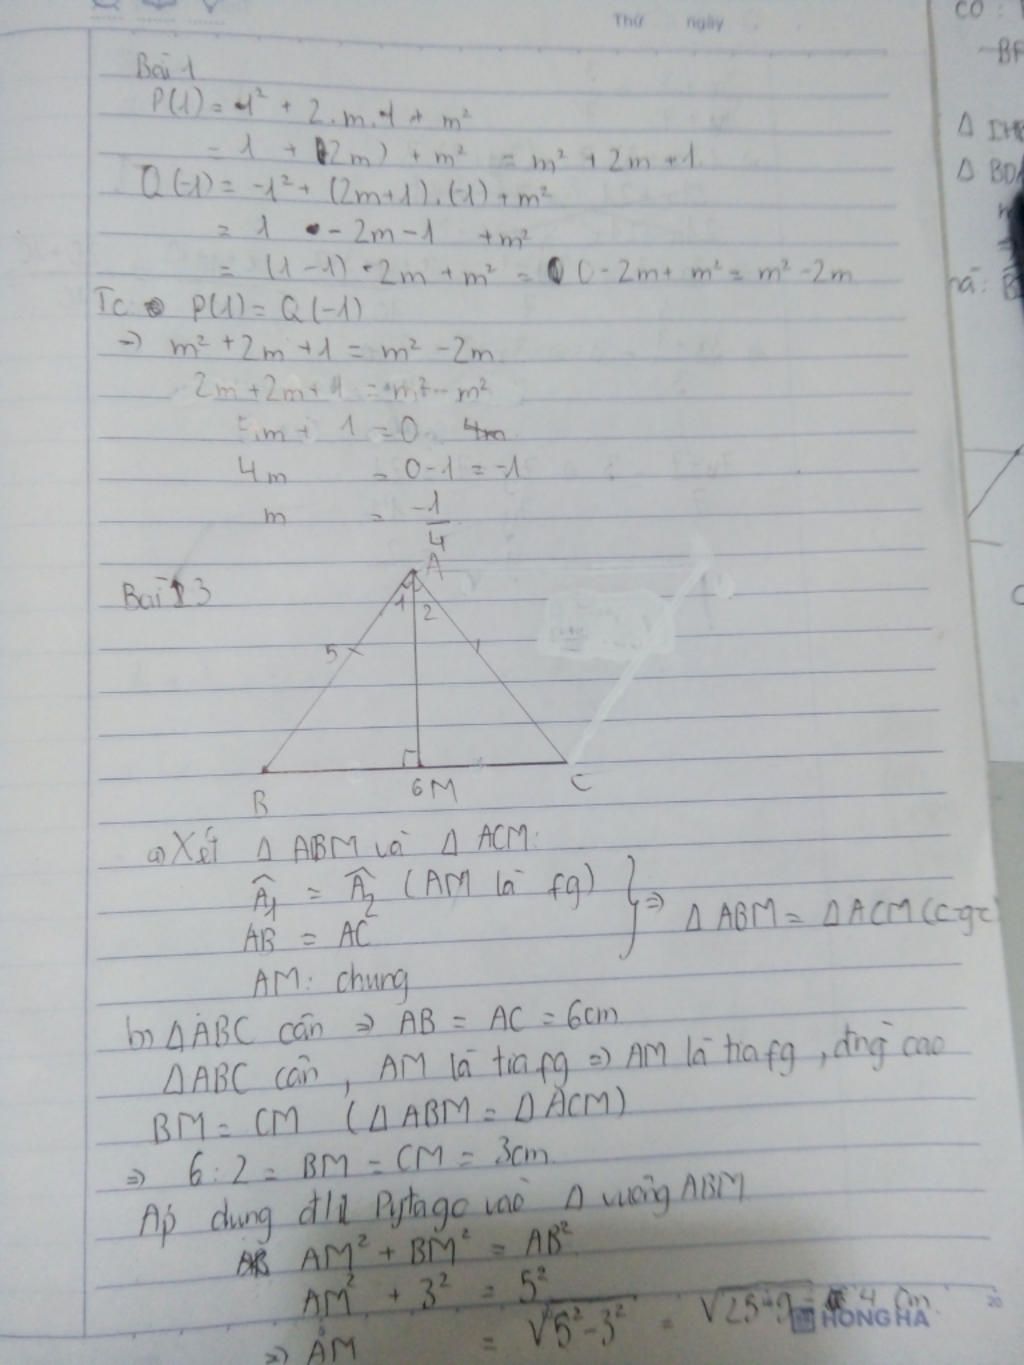 Thứ ngày
Bài 1
P(1) = 1² + 2.m.1 + m²
= 1 + (2m) + m² = m² + 2m + 1
Q(-1) = -1² + (2m+1).(-1) + m²
= 1 - 2m - 1 + m²
= (1-1) - 2m + m² = 0 - 2m + m² = m² - 2m
Tc P(1) = Q(-1)
→ m² + 2m + 1 = m² - 2m
2m + 2m + 1 = m² - m²
4m + 1 = 0 4m
4m = 0 - 1 = -1
m = -1/4
Bài 3
A
1 2
5
B 6 M C
a) Xét Δ ABM và Δ ACM:
Â1 = Â2 (AM là fg)
AB = AC
⇒ Δ ABM = Δ ACM (c-g-c)
AM: chung
b) ΔABC cân ⇒ AB = AC = 6cm
ΔABC cân, AM là tia fg ⇒ AM là tia fg, đng cao
BM = CM (Δ ABM = Δ ACM)
⇒ 6 : 2 = BM = CM = 3cm
Áp dụng đ/l Pytago vào Δ vuông ABM
AM² + BM² = AB²
AM² + 3² = 5²
⇒ AM = √5²-3² = √25-9 = 4 cm
HONG HA
20
CO :
BF
Δ
Δ BD